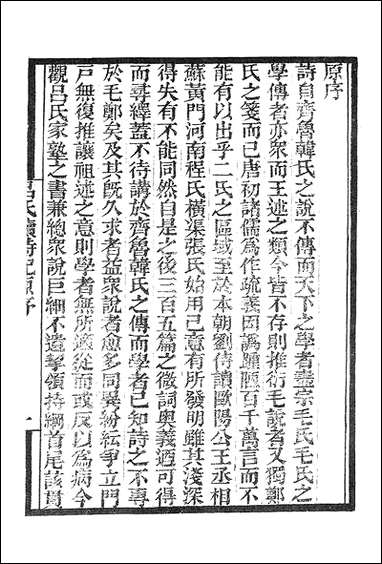 原序
詩自齊魯韓氏之說不傳而天下之學者盡宗毛氏毛氏之
學傳者亦衆而王述之類今皆不存則推衍毛說者又獨鄭
氏之箋而已唐初諸儒爲作疏義因譌踵陋百千萬言而不
能有以出乎二氏之區域至於本朝劉侍讀歐陽公王丞相
蘇黃門河南程氏橫渠張氏始用己意有所發明雖其淺深
得失有不能同然自是之後三百五篇之微詞奧義廼可得
而尋繹蓋不待講於齊魯韓氏之傳而學者已知詩之不專
於毛鄭矣及其旣久求者益衆說者愈多同異紛紜爭立門
戶無復推讓祖述之意則學者無所適從而或反以爲病今
觀呂氏家塾之書兼總衆說巨細不遺挈領持綱首尾該貫
呂氏讀詩記原序
一